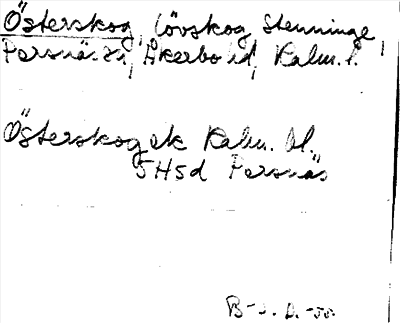 Österskog, lövskog Stenninge,
Persnäs sn, Åkerbo hd, Kalm. l.
Österskog ek Kalm. bl.
5H5d Persnäs